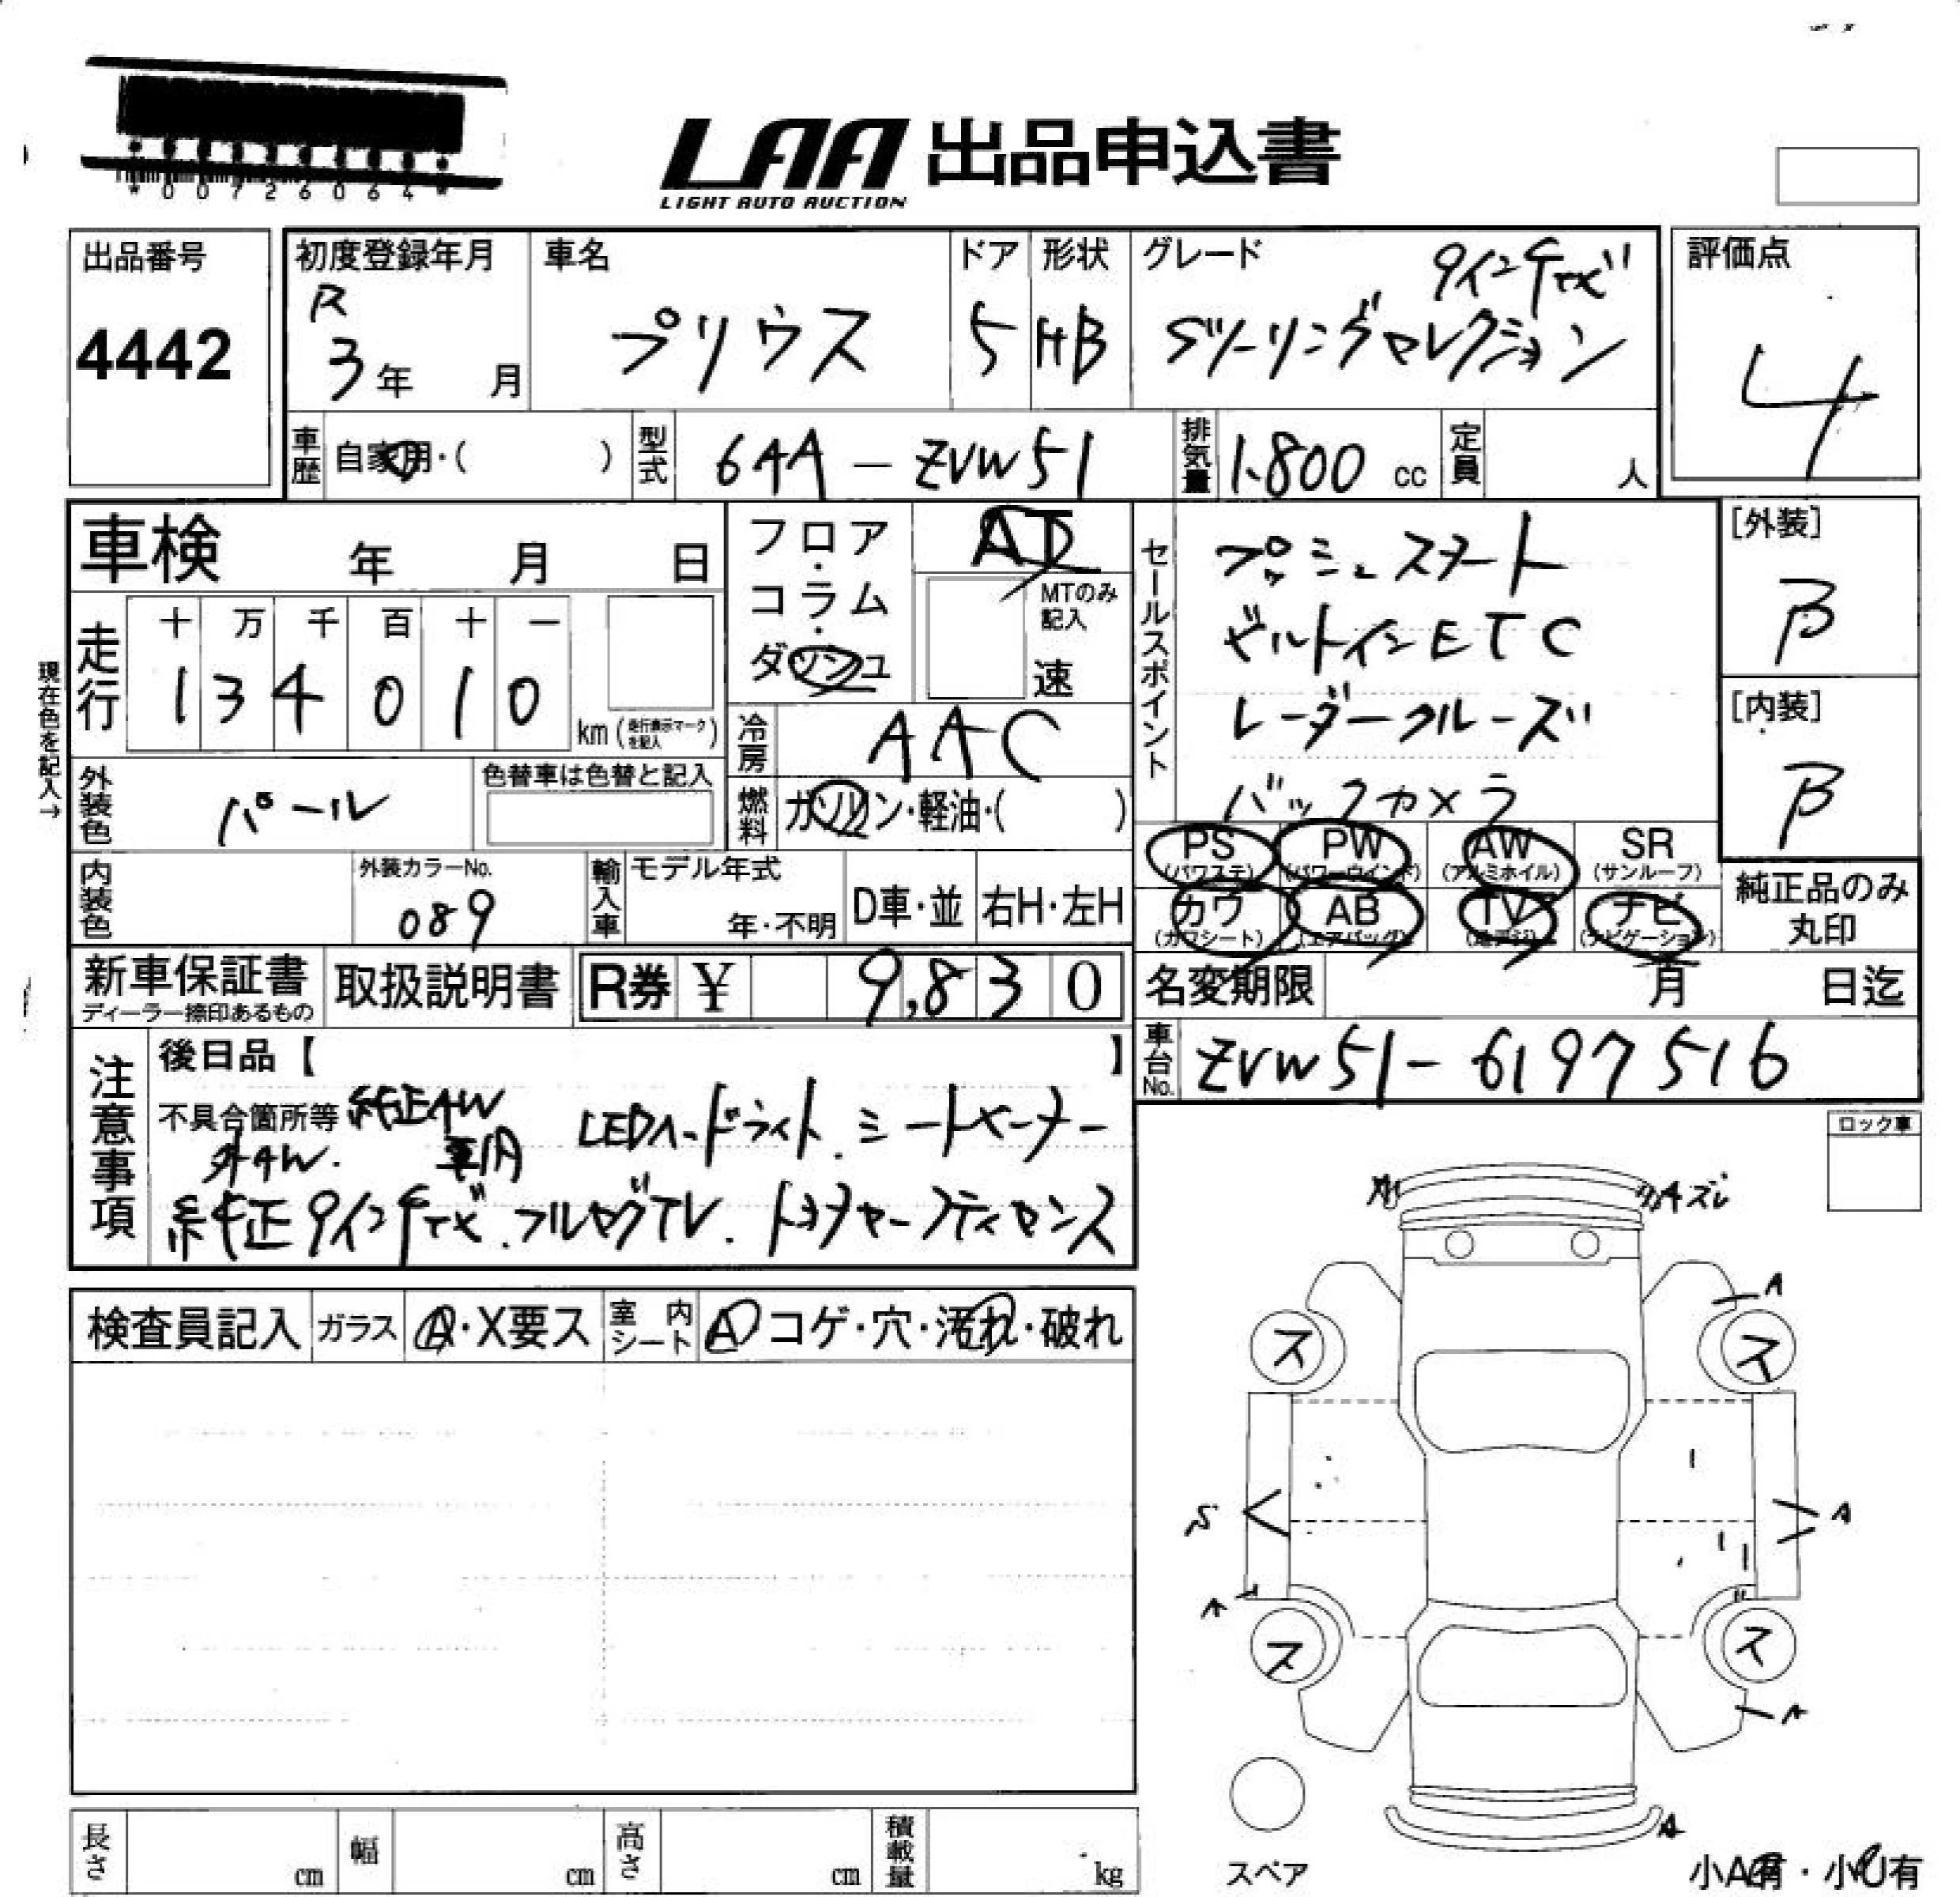 *00726064*
LAA 出品申込書
LIGHT AUTO AUCTION
出品番号
4442
初度登録年月
R
3年 月
車名
プリウス
ドア
5
形状
HB
グレード
9インチナビ
Sツーリングセレクション
評価点
4
車歴 自家用・( )
型式 6AA-ZVW51
排気量 1.800 cc
定員 人
車検 年 月 日
フロア・コラム・ダッシュ
AT
MTのみ記入
速
セールスポイント
プッシュスタート
ビルトインETC
レーダークルーズ
バックカメラ
[外装]
B
[内装]
B
現在色を記入→
走行
十 万 千 百 十 一
1 3 4 0 1 0
km (走行表示マークを記入)
冷房 AAC
外装色 パール
色替車は色替と記入
燃料 ガソリン・軽油・( )
PS (パワステ)
PW (パワーウインド)
AW (アルミホイル)
SR (サンルーフ)
カワ (カワシート)
AB (エアバッグ)
TV (地デジ)
ナビ (ナビゲーション)
純正品のみ丸印
内装色
外装カラーNo.
089
輸入車
モデル年式
年・不明
D車・並
右H・左H
新車保証書
ディーラー捺印あるもの
取扱説明書
R券 ¥ 9,830
名変期限 月 日迄
車台No. ZVW51-6197516
注意事項
後日品【 】
不具合箇所等 純正AW
外AW. LEDヘッドライト. シートヒーター
純正9インチナビ.フルセグTV.トヨタセーフティセンス
ロック車
検査員記入
ガラス
A・X要ス
室内シート
A コゲ・穴・汚れ・破れ
キズレ
A
ス
ス
S
A
A
ス
ス
A
A
スペア
小A有・小U有
長さ cm
幅 cm
高さ cm
積載量 kg